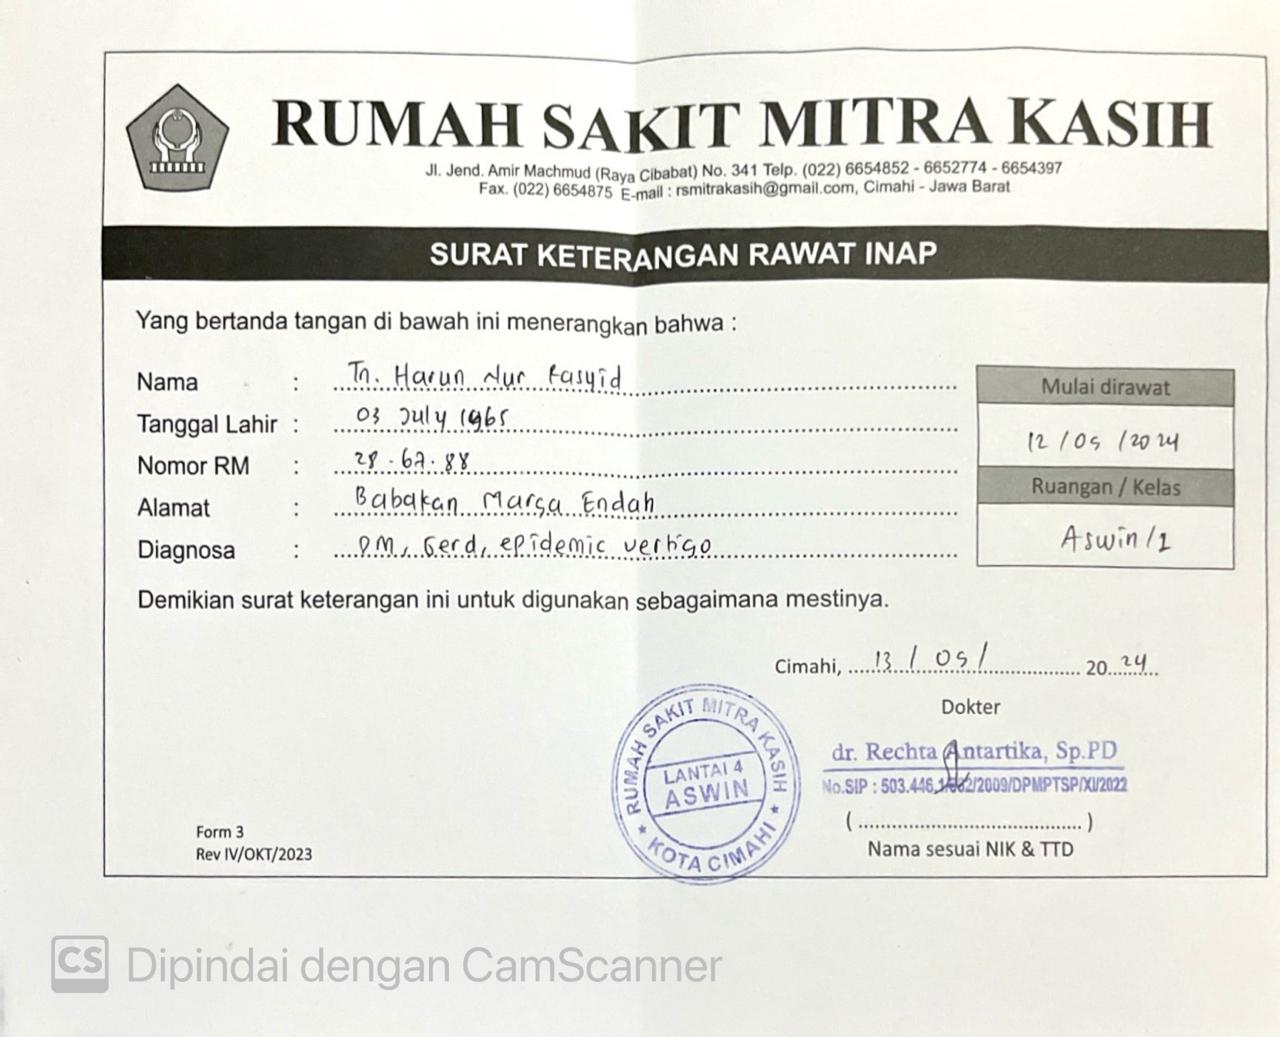 RUMAH SAKIT MITRA KASIH
Jl. Jend. Amir Machmud (Raya Cibabat) No. 341 Telp. (022) 6654852 - 6652774 - 6654397
Fax. (022) 6654875 E-mail : rsmitrakasih@gmail.com, Cimahi - Jawa Barat
SURAT KETERANGAN RAWAT INAP
Yang bertanda tangan di bawah ini menerangkan bahwa :
Nama : Tn. Harun Nur Rasyid
Tanggal Lahir : 03 July 1965
Nomor RM : 28.67.88
Alamat : Babakan Marga Endah
Diagnosa : DM, Gerd, epidemic vertigo
Mulai dirawat
12 / 05 / 2024
Ruangan / Kelas
Aswin / 1
Demikian surat keterangan ini untuk digunakan sebagaimana mestinya.
Cimahi, 13 / 05 / 2024
Dokter
dr. Rechta Antartika, Sp.PD
No.SIP : 503.446. /2009/DPMPTSP/XI/2022
(........................................)
Nama sesuai NIK & TTD
RUMAH SAKIT MITRA KASIH
LANTAI 4
ASWIN
★ KOTA CIMAHI ★
Form 3
Rev IV/OKT/2023
CS Dipindai dengan CamScanner